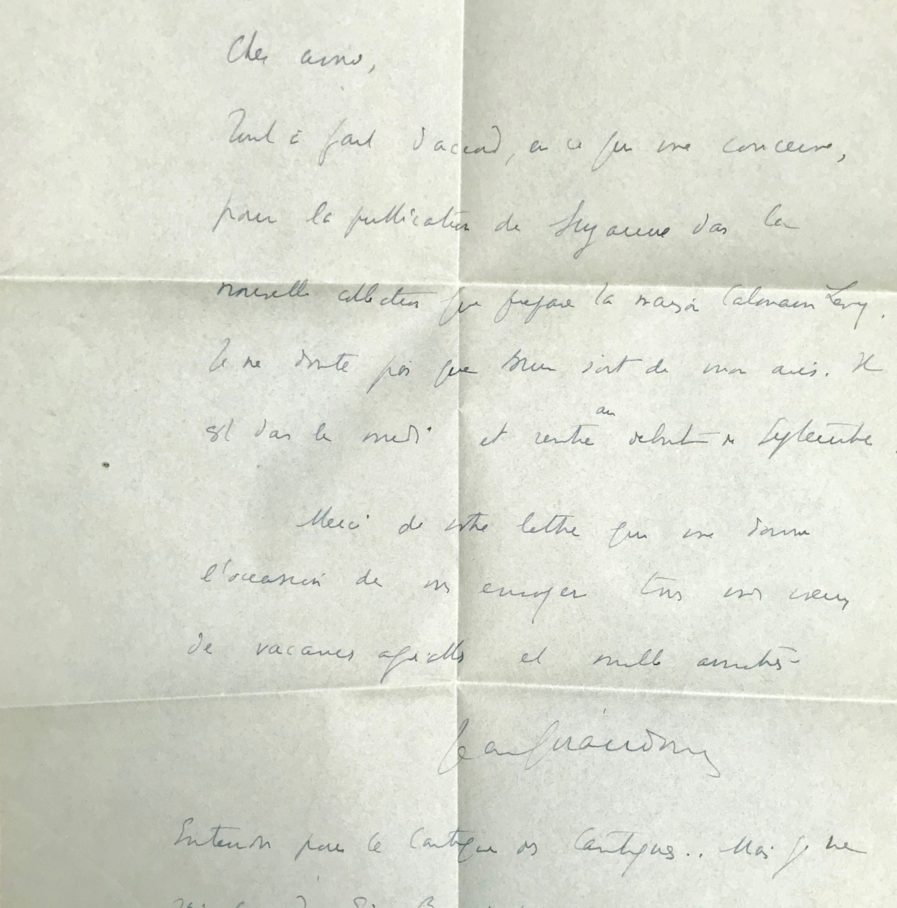 Cher ami,
Tout à fait d'accord, en ce qui me concerne,
pour la publication de Suzanne dans la
nouvelle collection que prépare la maison Calmann Levy.
Je ne doute pas que Brun soit de mon avis. Il
est dans le midi et rentre au début de Septembre.
Merci de votre lettre qui me donne
l'occasion de vous envoyer tous mes vœux
de vacances et mille amitiés
Jean Giraudoux
Entendu pour le Cantique des Cantiques.. Mais je ne